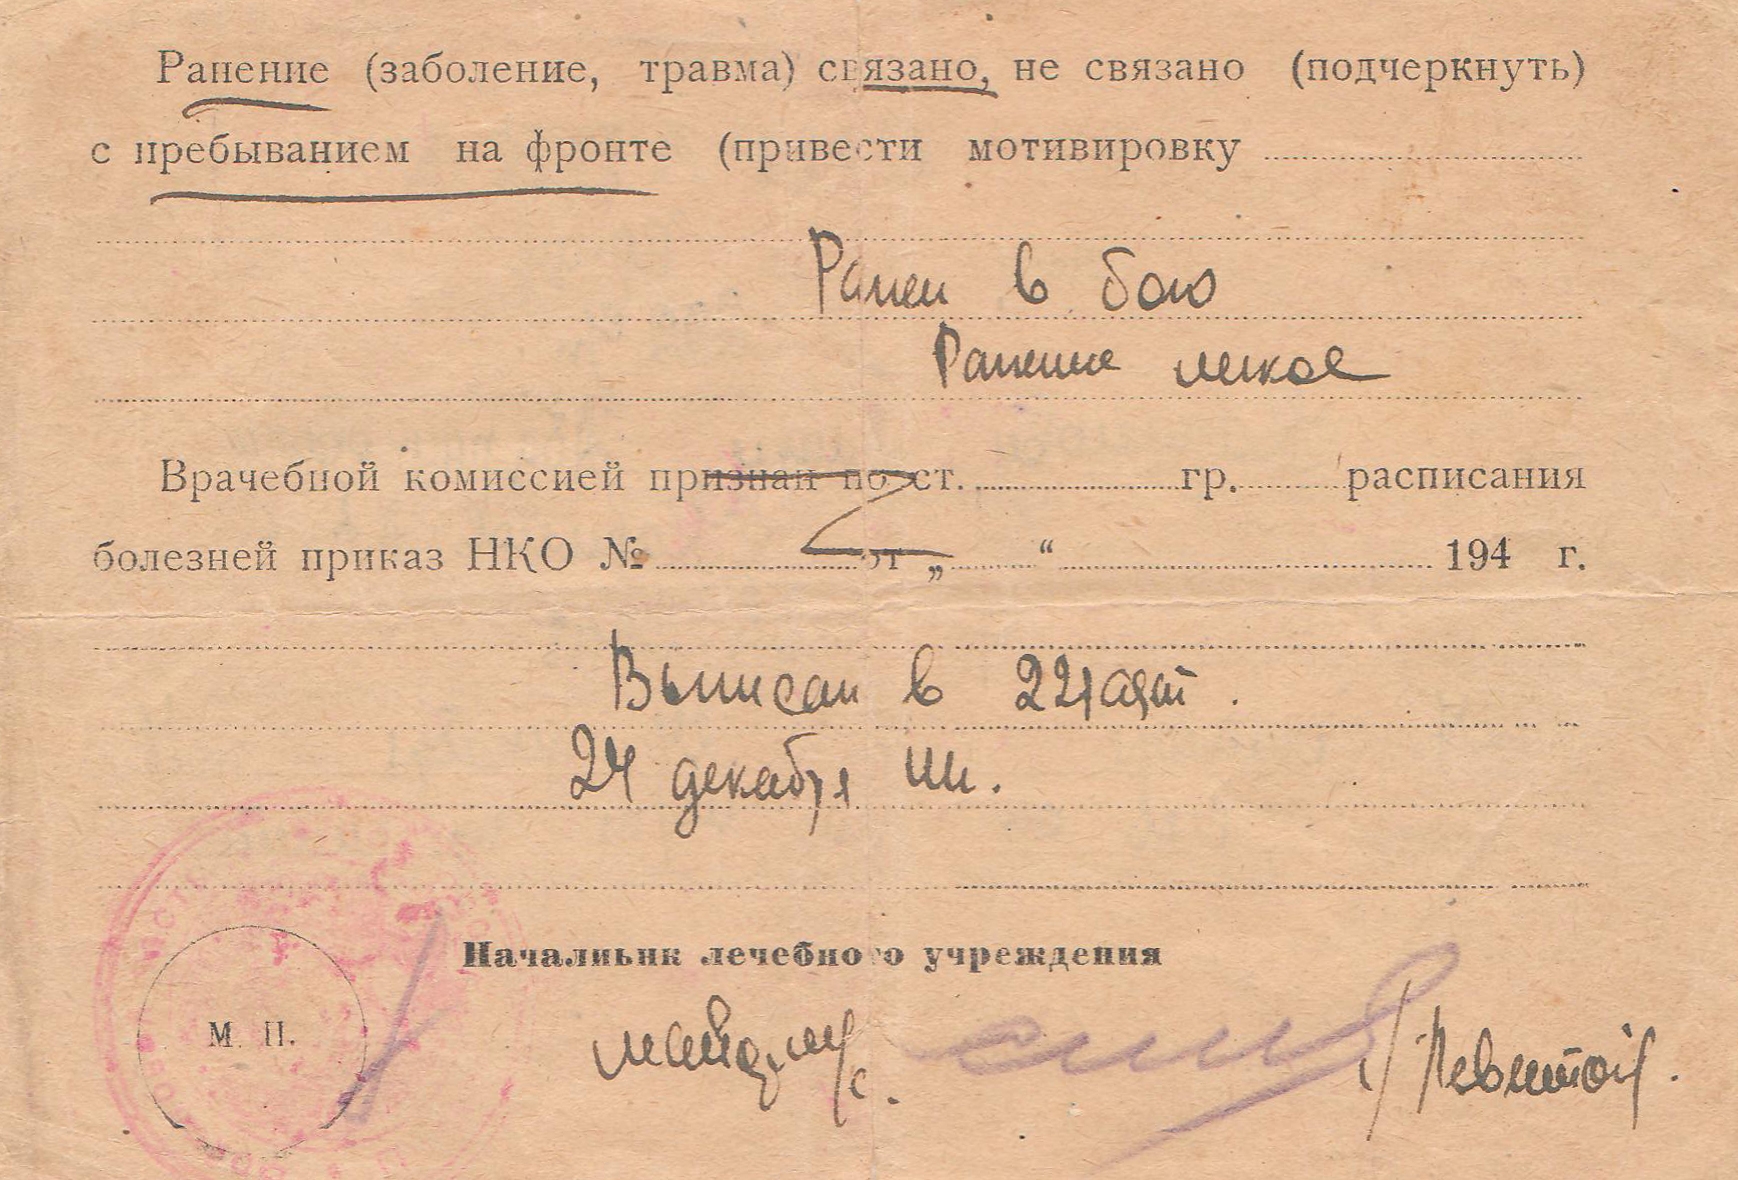 Ранение (заболение, травма) связано, не связано (подчеркнуть)
с пребыванием на фронте (привести мотивировку
Ранен в бою
Ранение легкое
Врачебной комиссией признан по ст. гр. расписания
болезней приказ НКО № от „ “ 194 г.
Выписан в
24 декабря
Началиьнк лечебного учреждения
М. П.